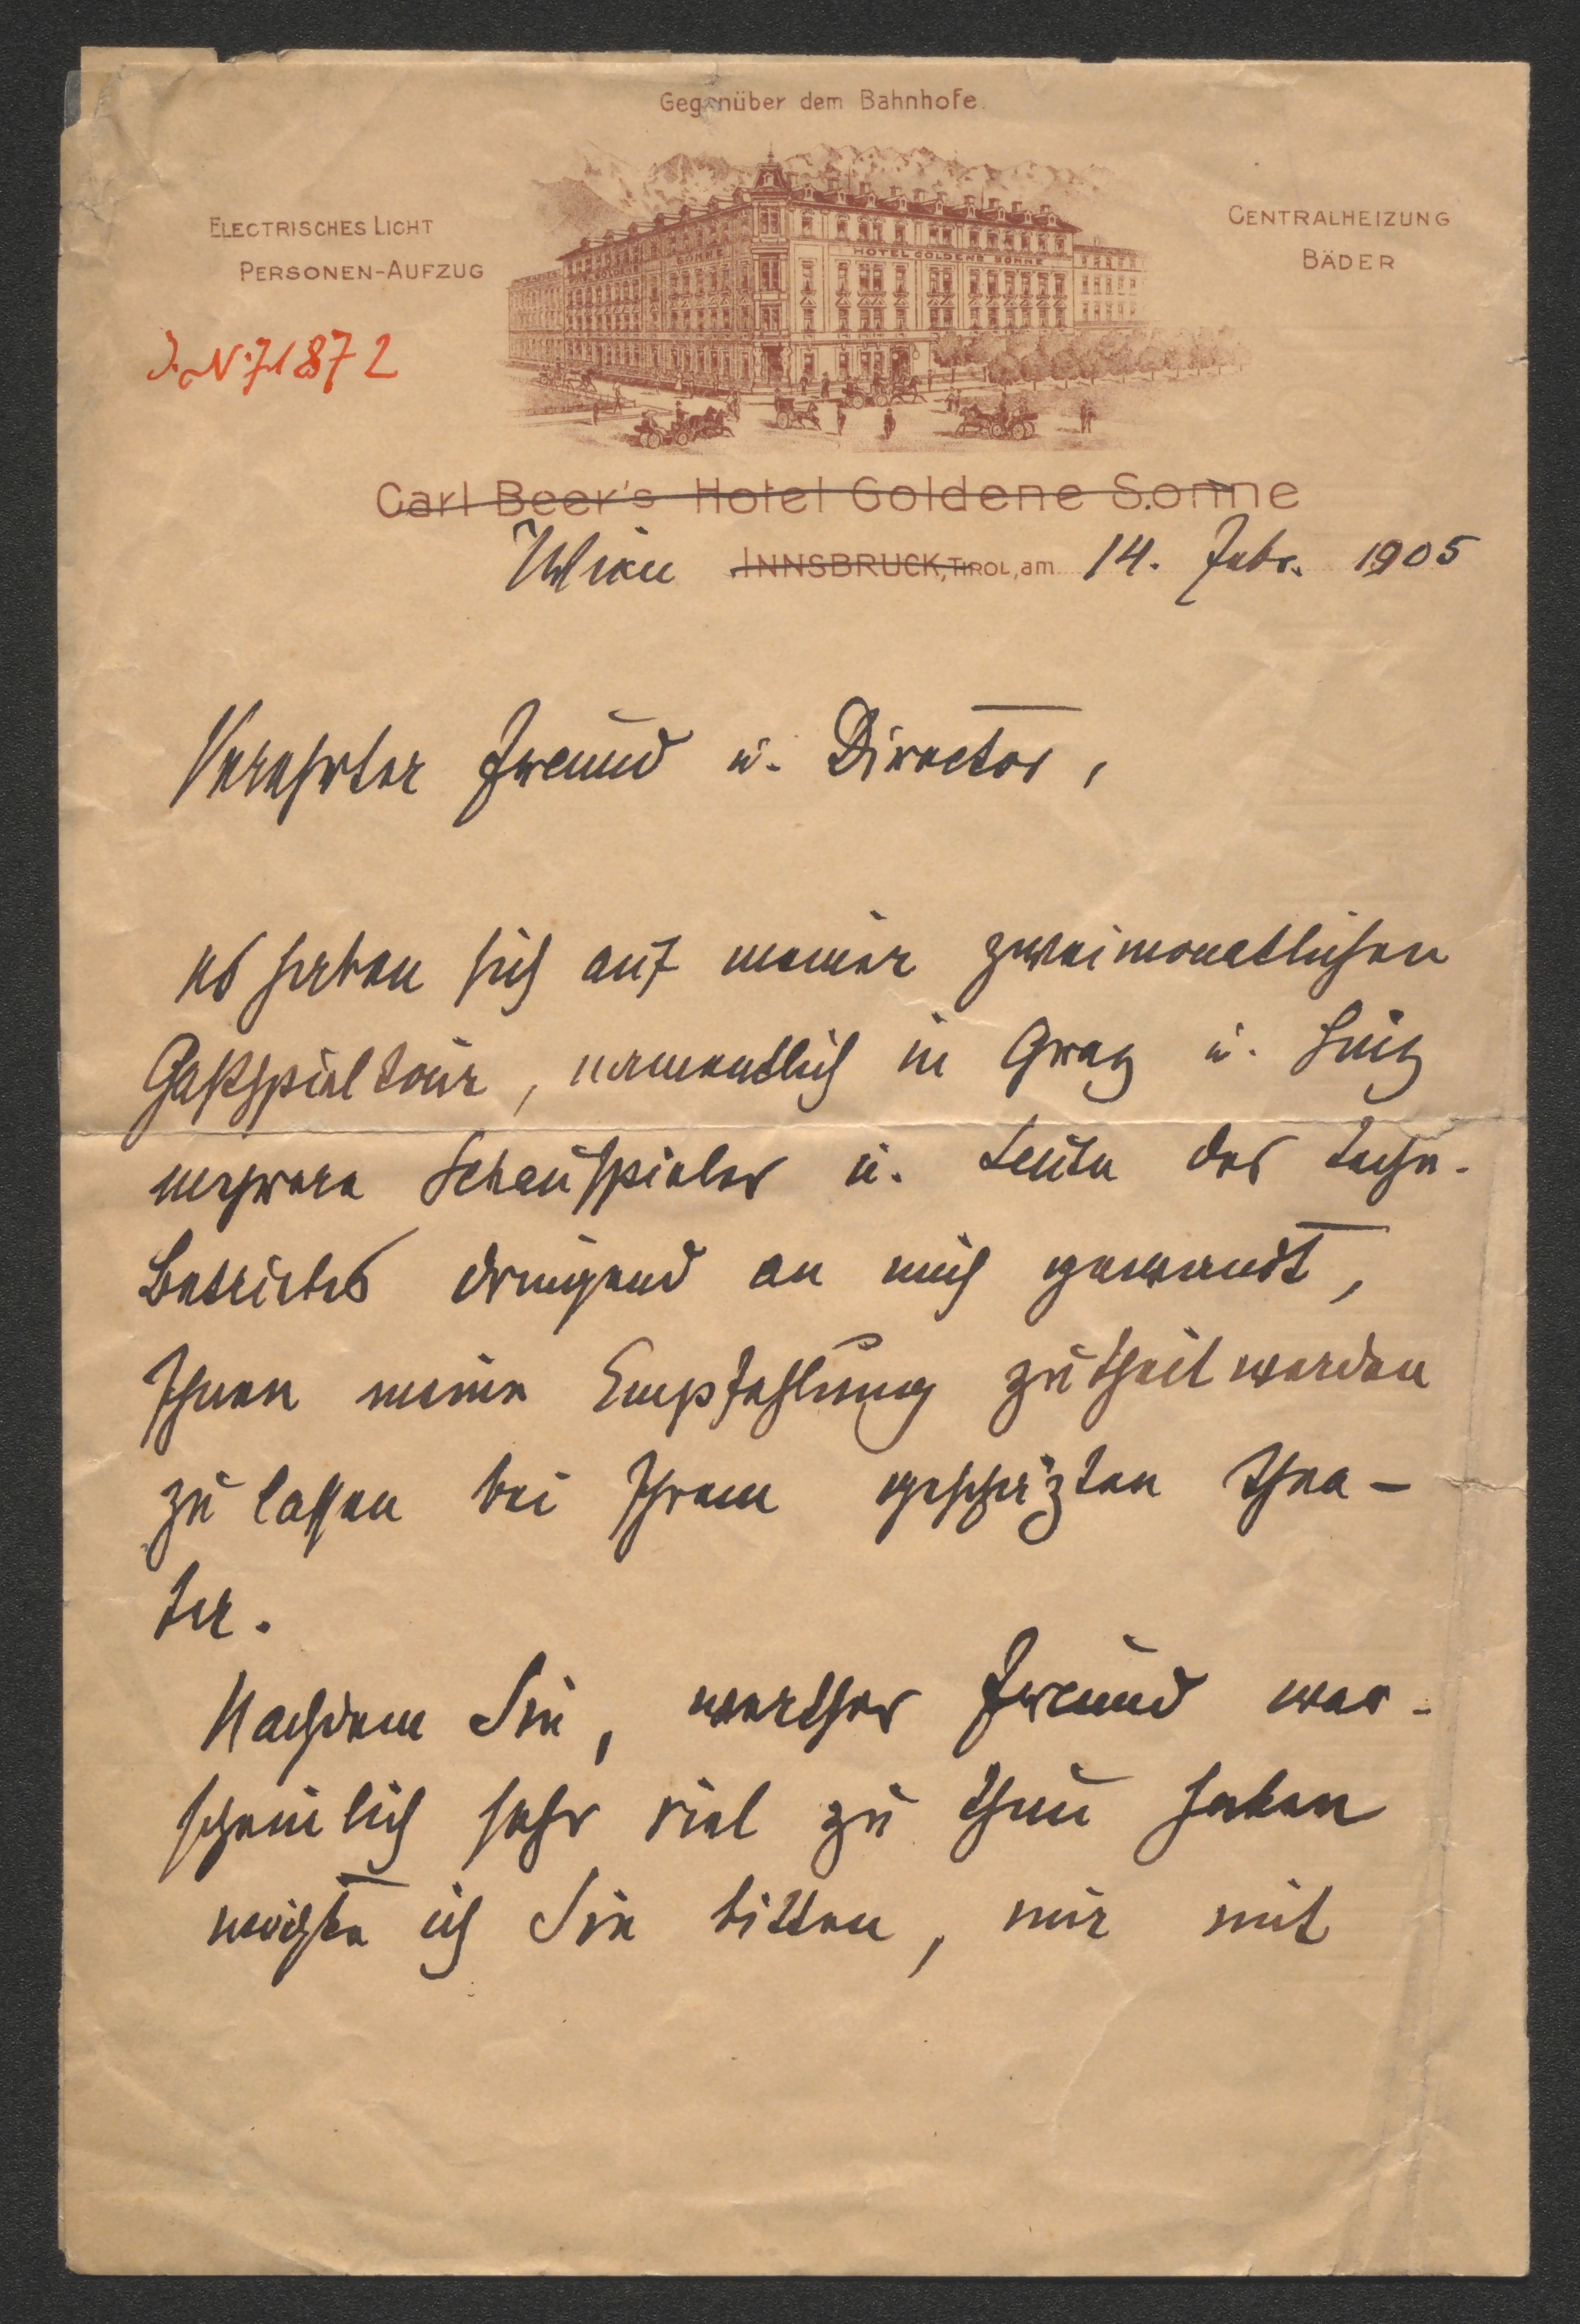 Gegenüber dem Bahnhofe.
ELECTRISCHES LICHT
PERSONEN-AUFZUG
CENTRALHEIZUNG
BÄDER
HOTEL GOLDENE SONNE
J. N. 71872
Carl Beer's Hotel Goldene Sonne
Wien INNSBRUCK, TIROL, am 14. Febr. 1905
Verehrter Freund u. Director,
es haben sich auf meiner zweimonatlichen
Gastspieltour, namentlich in Graz u. Linz
mehrere Schauspieler u. Leute des techn.
Betriebes dringend an mich gewandt,
Ihnen meine Empfehlung zutheil werden
zu lassen bei Ihrem geschäzten Thea-
ter.
Nachdem Sie, werther Freund war-
scheinlich sehr viel zu thun haben
möchte ich Sie bitten, mir mit